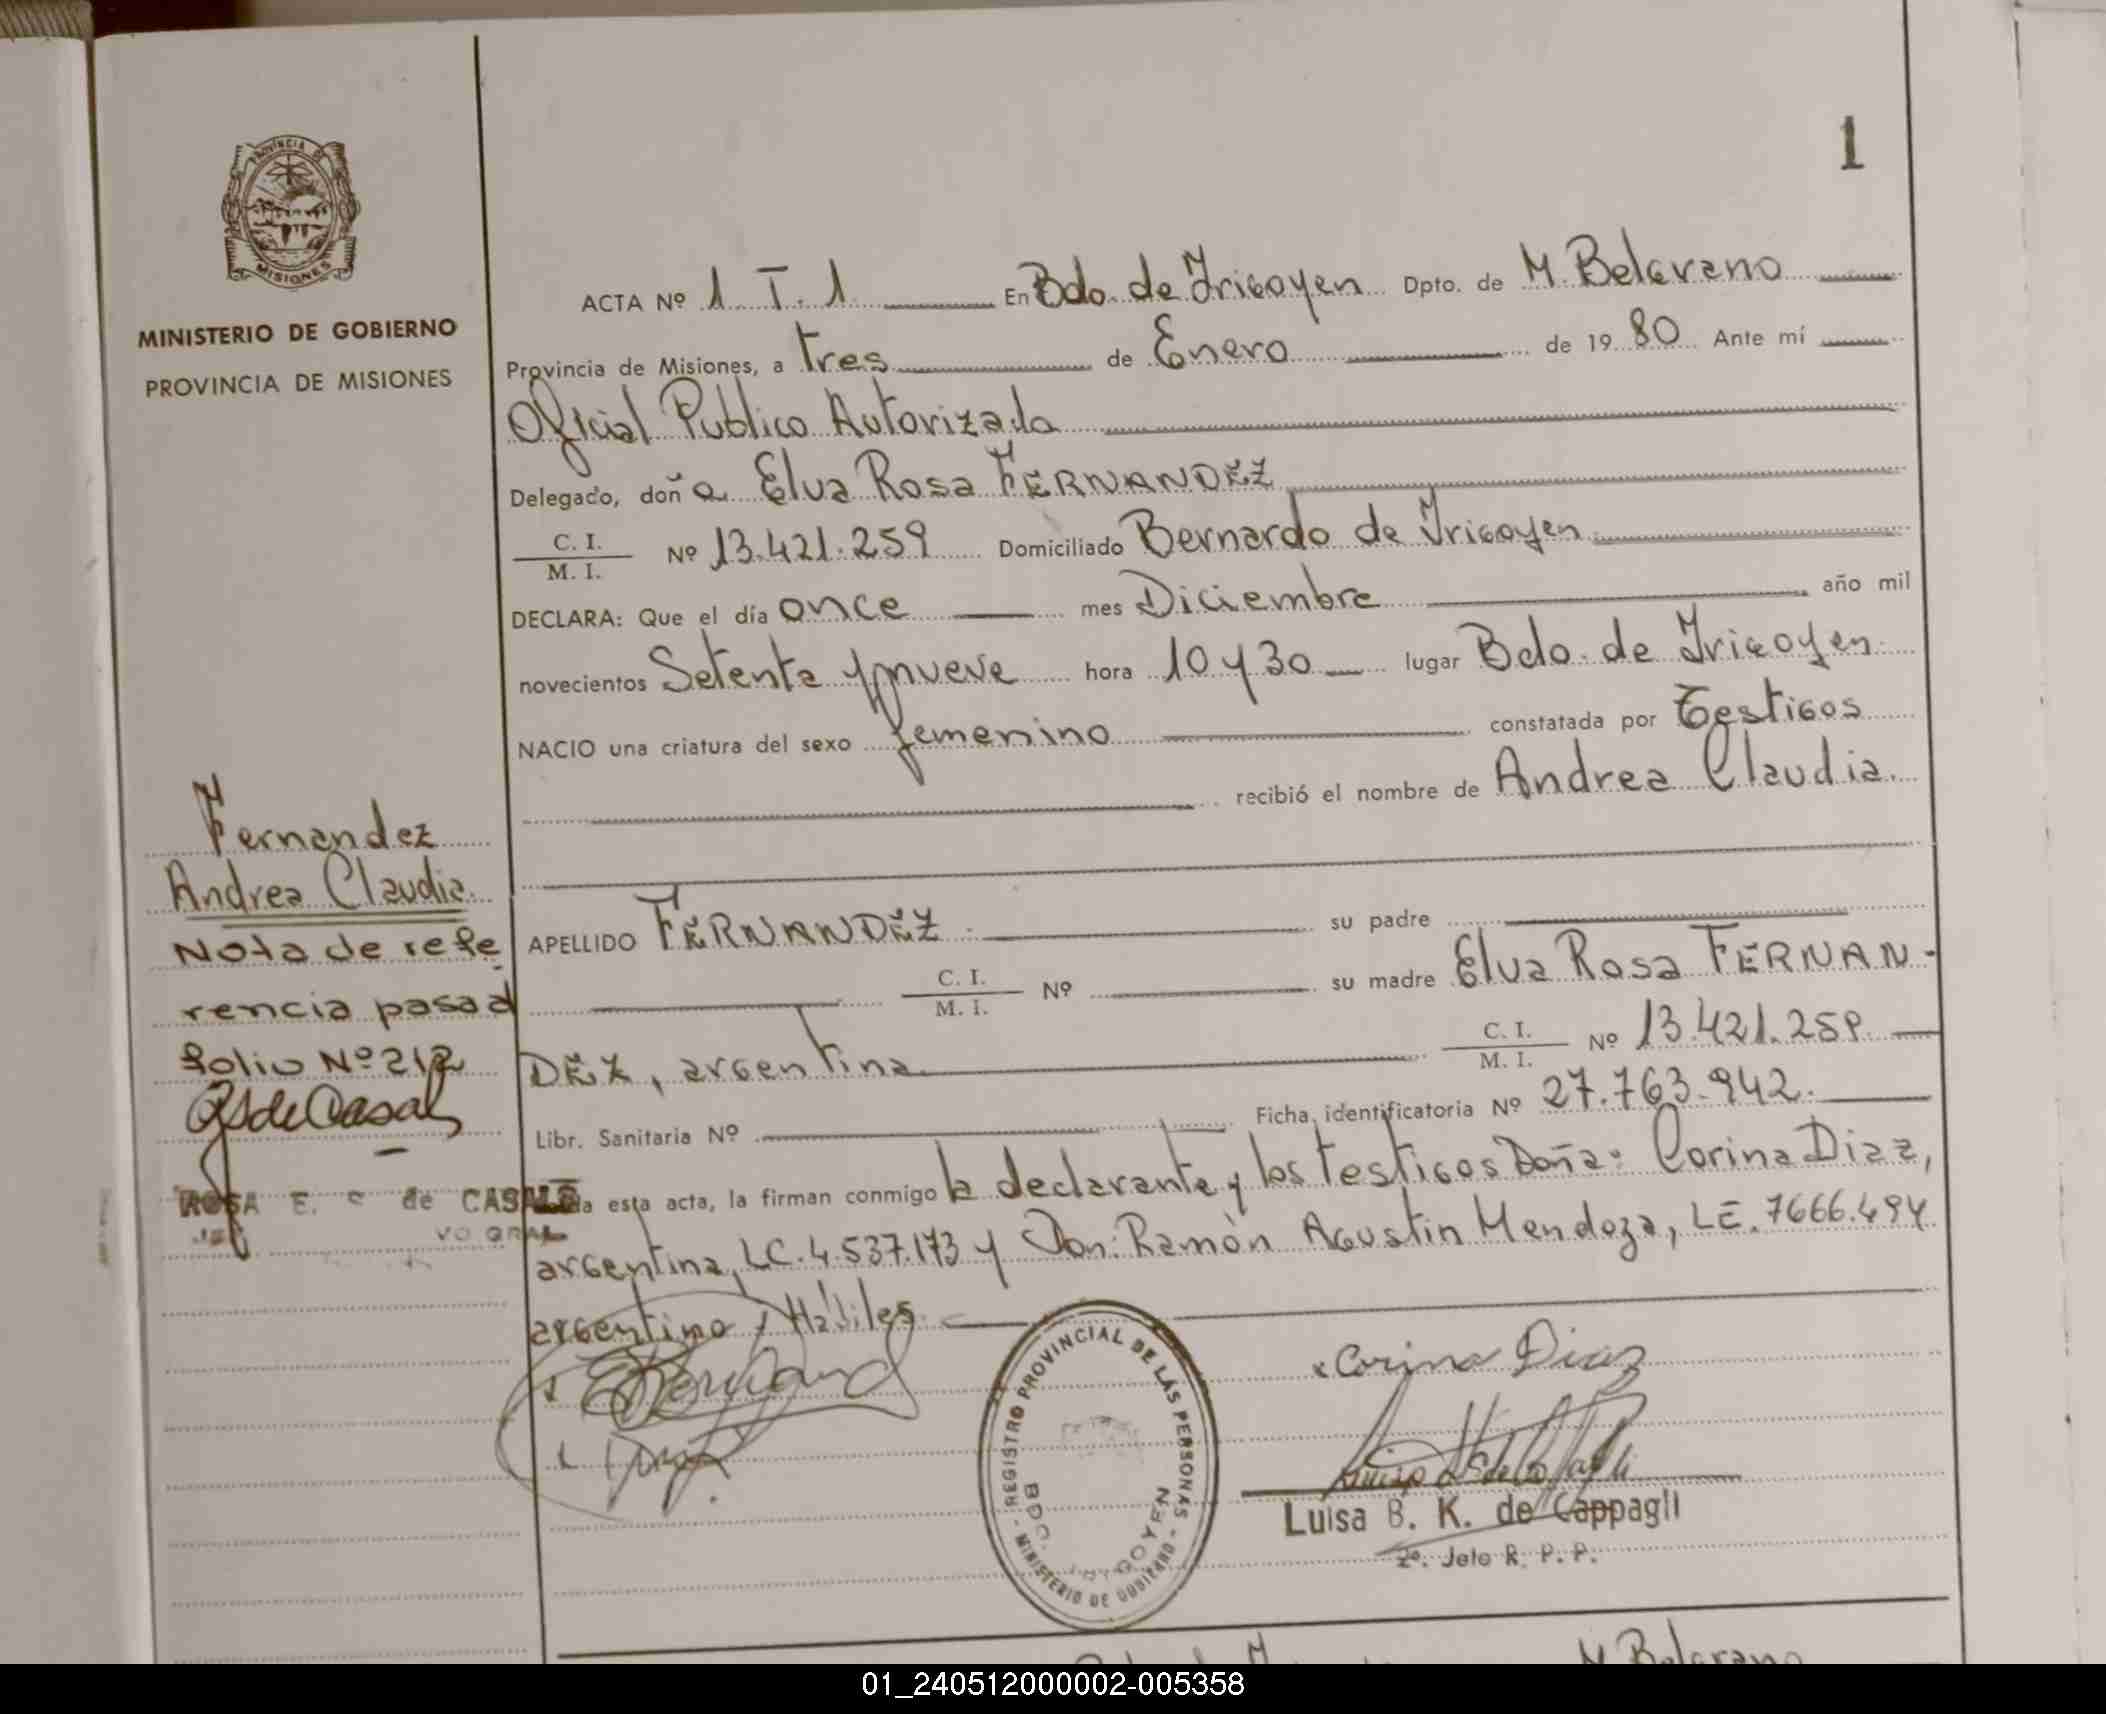 1
PROVINCIA DE
MISIONES
MINISTERIO DE GOBIERNO
PROVINCIA DE MISIONES
ACTA Nº 1 T. 1 En Bdo. de Irigoyen Dpto. de M. Belgrano
Provincia de Misiones, a tres de Enero de 1980 Ante mí
Oficial Publico Autorizada
Delegado, doña Elva Rosa FERNANDEZ
C. I.
M. I. Nº 13.421.259 Domiciliado Bernardo de Irigoyen
DECLARA: Que el día once mes Diciembre año mil
novecientos Setenta y nueve hora 10 y 30 lugar Bdo. de Irigoyen
NACIO una criatura del sexo femenino constatada por Testigos
recibió el nombre de Andrea Claudia.
APELLIDO FERNANDEZ. su padre
C. I.
M. I. Nº su madre Elva Rosa FERNAN-
DEZ, argentina C. I.
M. I. Nº 13.421.259.
Libr. Sanitaria Nº Ficha identificatoria Nº 27.763.942.
esta acta, la firman conmigo la declarante y los testigos Doña: Corina Diaz,
argentina, LC. 4.537.173 y Don: Ramòn Agustin Mendoza, LE. 7666.494
argentino, Hábiles.
Corina Diaz
Luisa B. K. de Cappagli
2º. Jefe R. P. P.
REGISTRO PROVINCIAL DE LAS PERSONAS - MINISTERIO DE GOBIERNO -
BDO. IRIGOYEN
Fernandez
Andrea Claudia.
Nota de refe
rencia pasad
folio Nº 212
RSdeCasal
ROSA E. S de CASAL
M. Belgrano
01_240512000002-005358